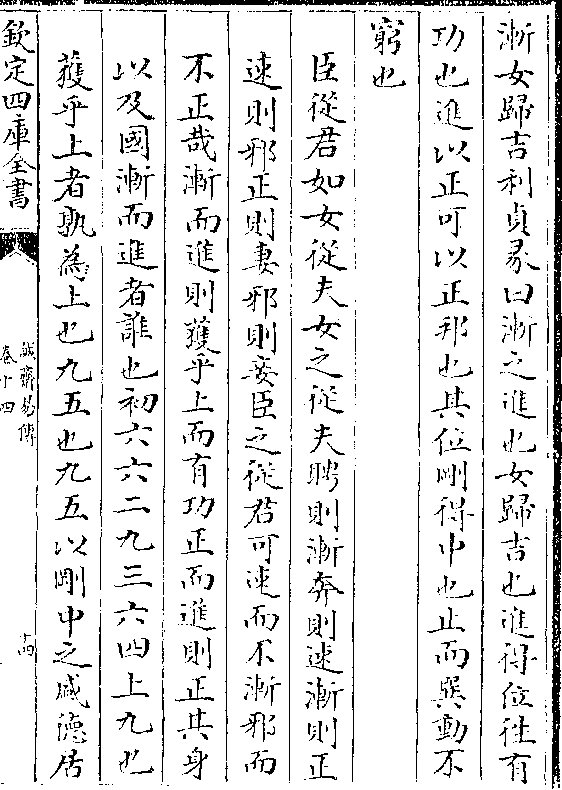 漸女歸吉利貞彖曰漸之進也女歸吉也進得位往有
功也進以正可以正邦也其位剛得中也止而巽動不
窮也
臣從君如女從夫女之從夫聘則漸奔則速漸則正
速則邪正則妻邪則妾臣之從君可速而不漸邪而
不正哉漸而進則獲乎上而有功正而進則正其身
以及國漸而進者誰也初六六二九三六四上九也
獲乎上者孰為上也九五也九五以剛中之盛德居
欽定四庫全書
誠齋易傳
卷十四
十四